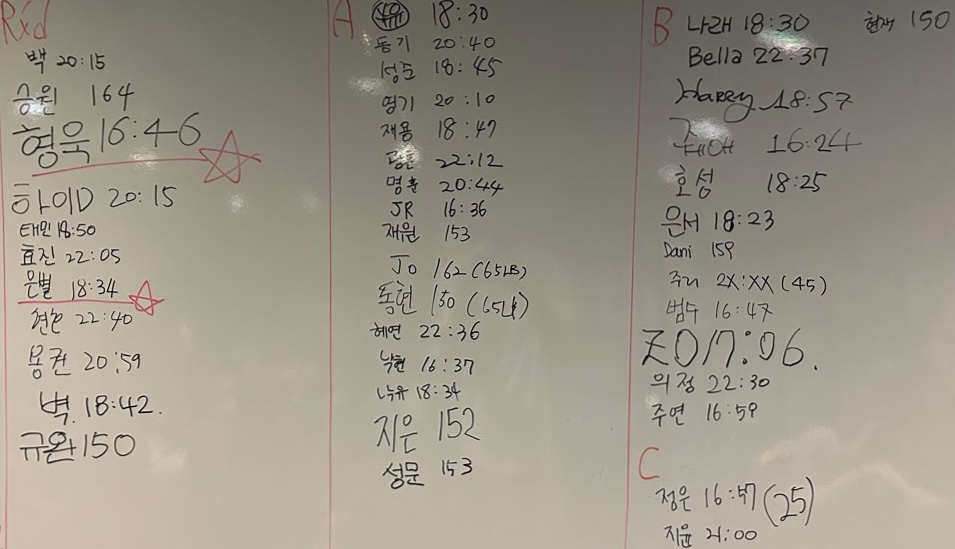 Rxd
백 20:15
승원 164
형욱 16:46
하이D 20:15
태민 18:50
효진 22:05
은별 18:34
22:40
용권 20:59
벽 18:42.
규완 150
A
18:30
동기 20:40
성준 18:45
영기 20:10
재용 18:47
22:12
명훈 20:44
JR 16:36
재원 153
Jo 162 (65LB)
동현 150 (65LB)
혜연 22:36
낙현 16:37
18:34
지은 152
성문 153
B
나래 18:30
현재 150
Bella 22:37
Harry 18:57
16:24
호성 18:25
은서 18:23
Dani 159
주리 2X:XX (45)
범수 16:47
ZO 17:06.
의정 22:30
주연 16:59
C
정은 16:57 (25)
지윤 21:00